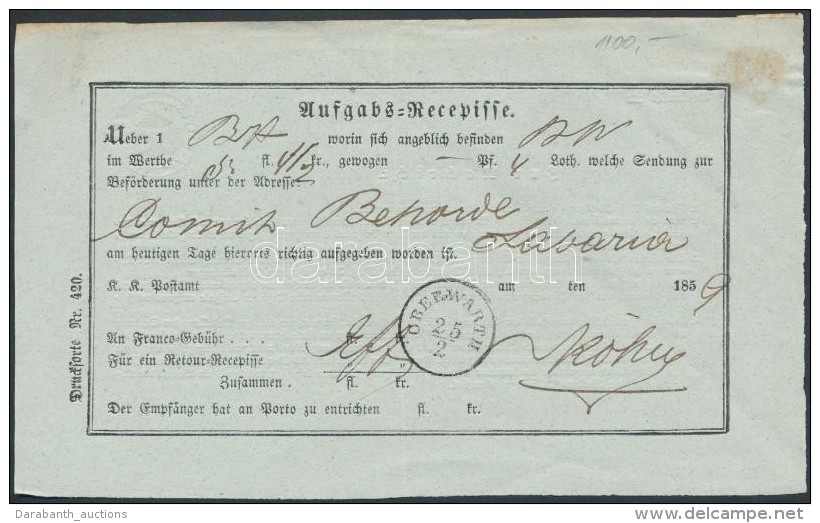 1100,-
Aufgabs=Recepisse.
Ueber 1 worin sich angeblich befinden
im Werthe fl. kr., gewogen — Pf. 4 Loth. welche Sendung zur
Beförderung unter der Adresse:
Comit. Behörde
Sabaria
am heutigen Tage hierorts richtig aufgegeben worden ist.
darabanth
K. K. Postamt am ten 1859
OBERWARTH
25
2
An Franco=Gebühr . . . fl. kr.
Für ein Retour=Recepisse " "
Zusammen . fl. kr.
Der Empfänger hat an Porto zu entrichten fl. kr.
Drucksorte Nr. 420.
Darabanth_auctions
delcampe.net